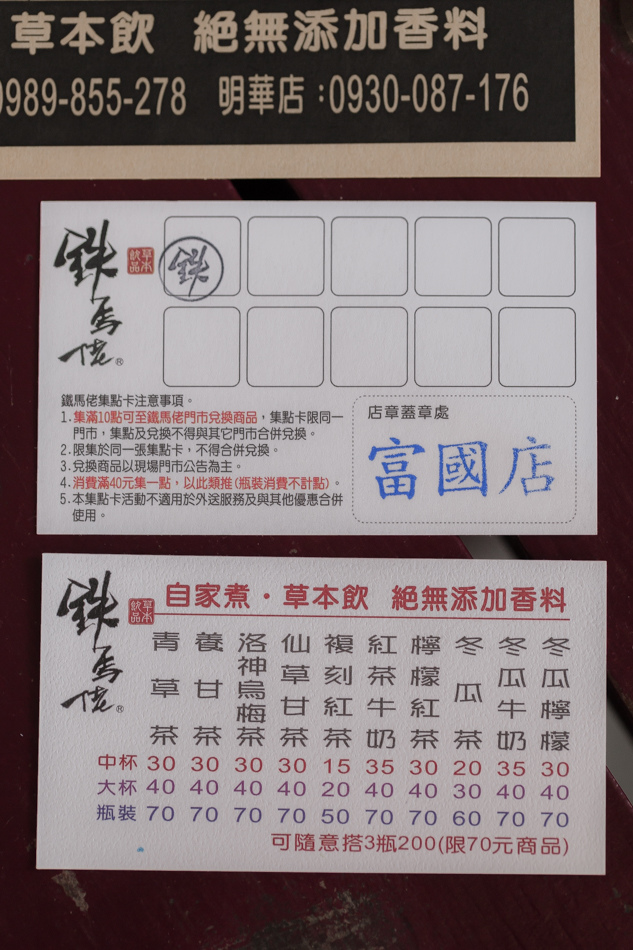 草本飲 絕無添加香料
0989-855-278 明華店:0930-087-176
鐵馬佬®
草本飲品
鐵
鐵馬佬集點卡注意事項。
1.集滿10點可至鐵馬佬門市兌換商品，集點卡限同一
門市，集點及兌換不得與其它門市合併兌換。
2.限集於同一張集點卡，不得合併兌換。
3.兌換商品以現場門市公告為主。
4.消費滿40元集一點，以此類推(瓶裝消費不計點)。
5.本集點卡活動不適用於外送服務及與其他優惠合併
使用。
店章蓋章處
富國店
鐵馬佬®
草本飲品
自家煮·草本飲 絕無添加香料
青草茶 養甘茶 洛神烏梅茶 仙草甘茶 複刻紅茶 紅茶牛奶 檸檬紅茶 冬瓜茶 冬瓜牛奶 冬瓜檸檬
中杯 30 30 30 30 15 35 30 20 35 30
大杯 40 40 40 40 20 40 40 30 40 40
瓶裝 70 70 70 70 50 70 70 60 70 70
可隨意搭3瓶200(限70元商品)